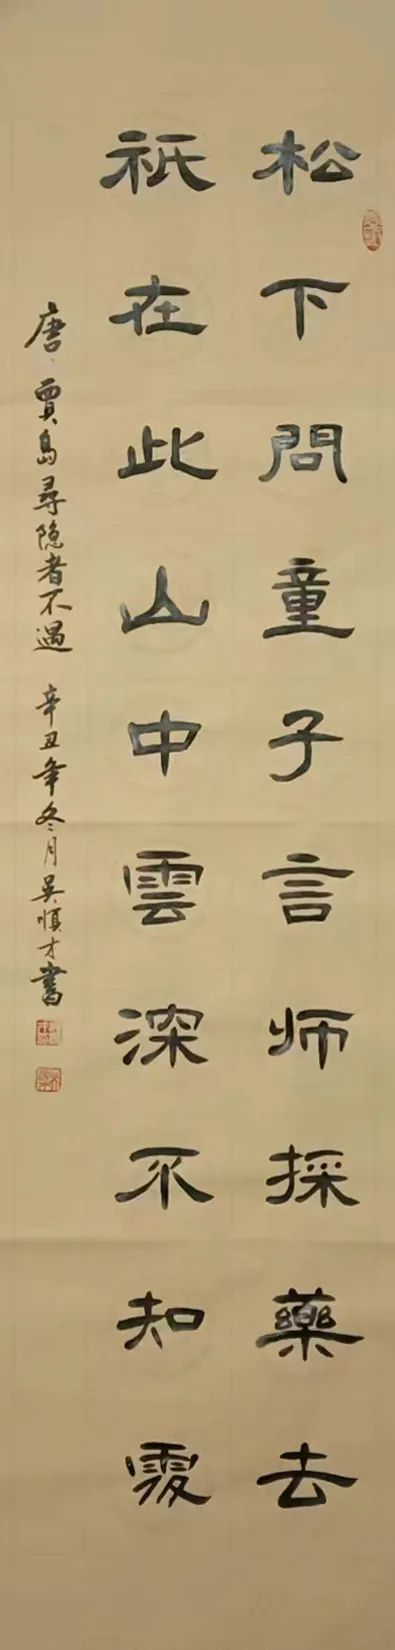 松下問童子言师採藥去
祇在此山中雲深不知處
唐賈島尋隐者不遇 辛丑年冬月吴順才書